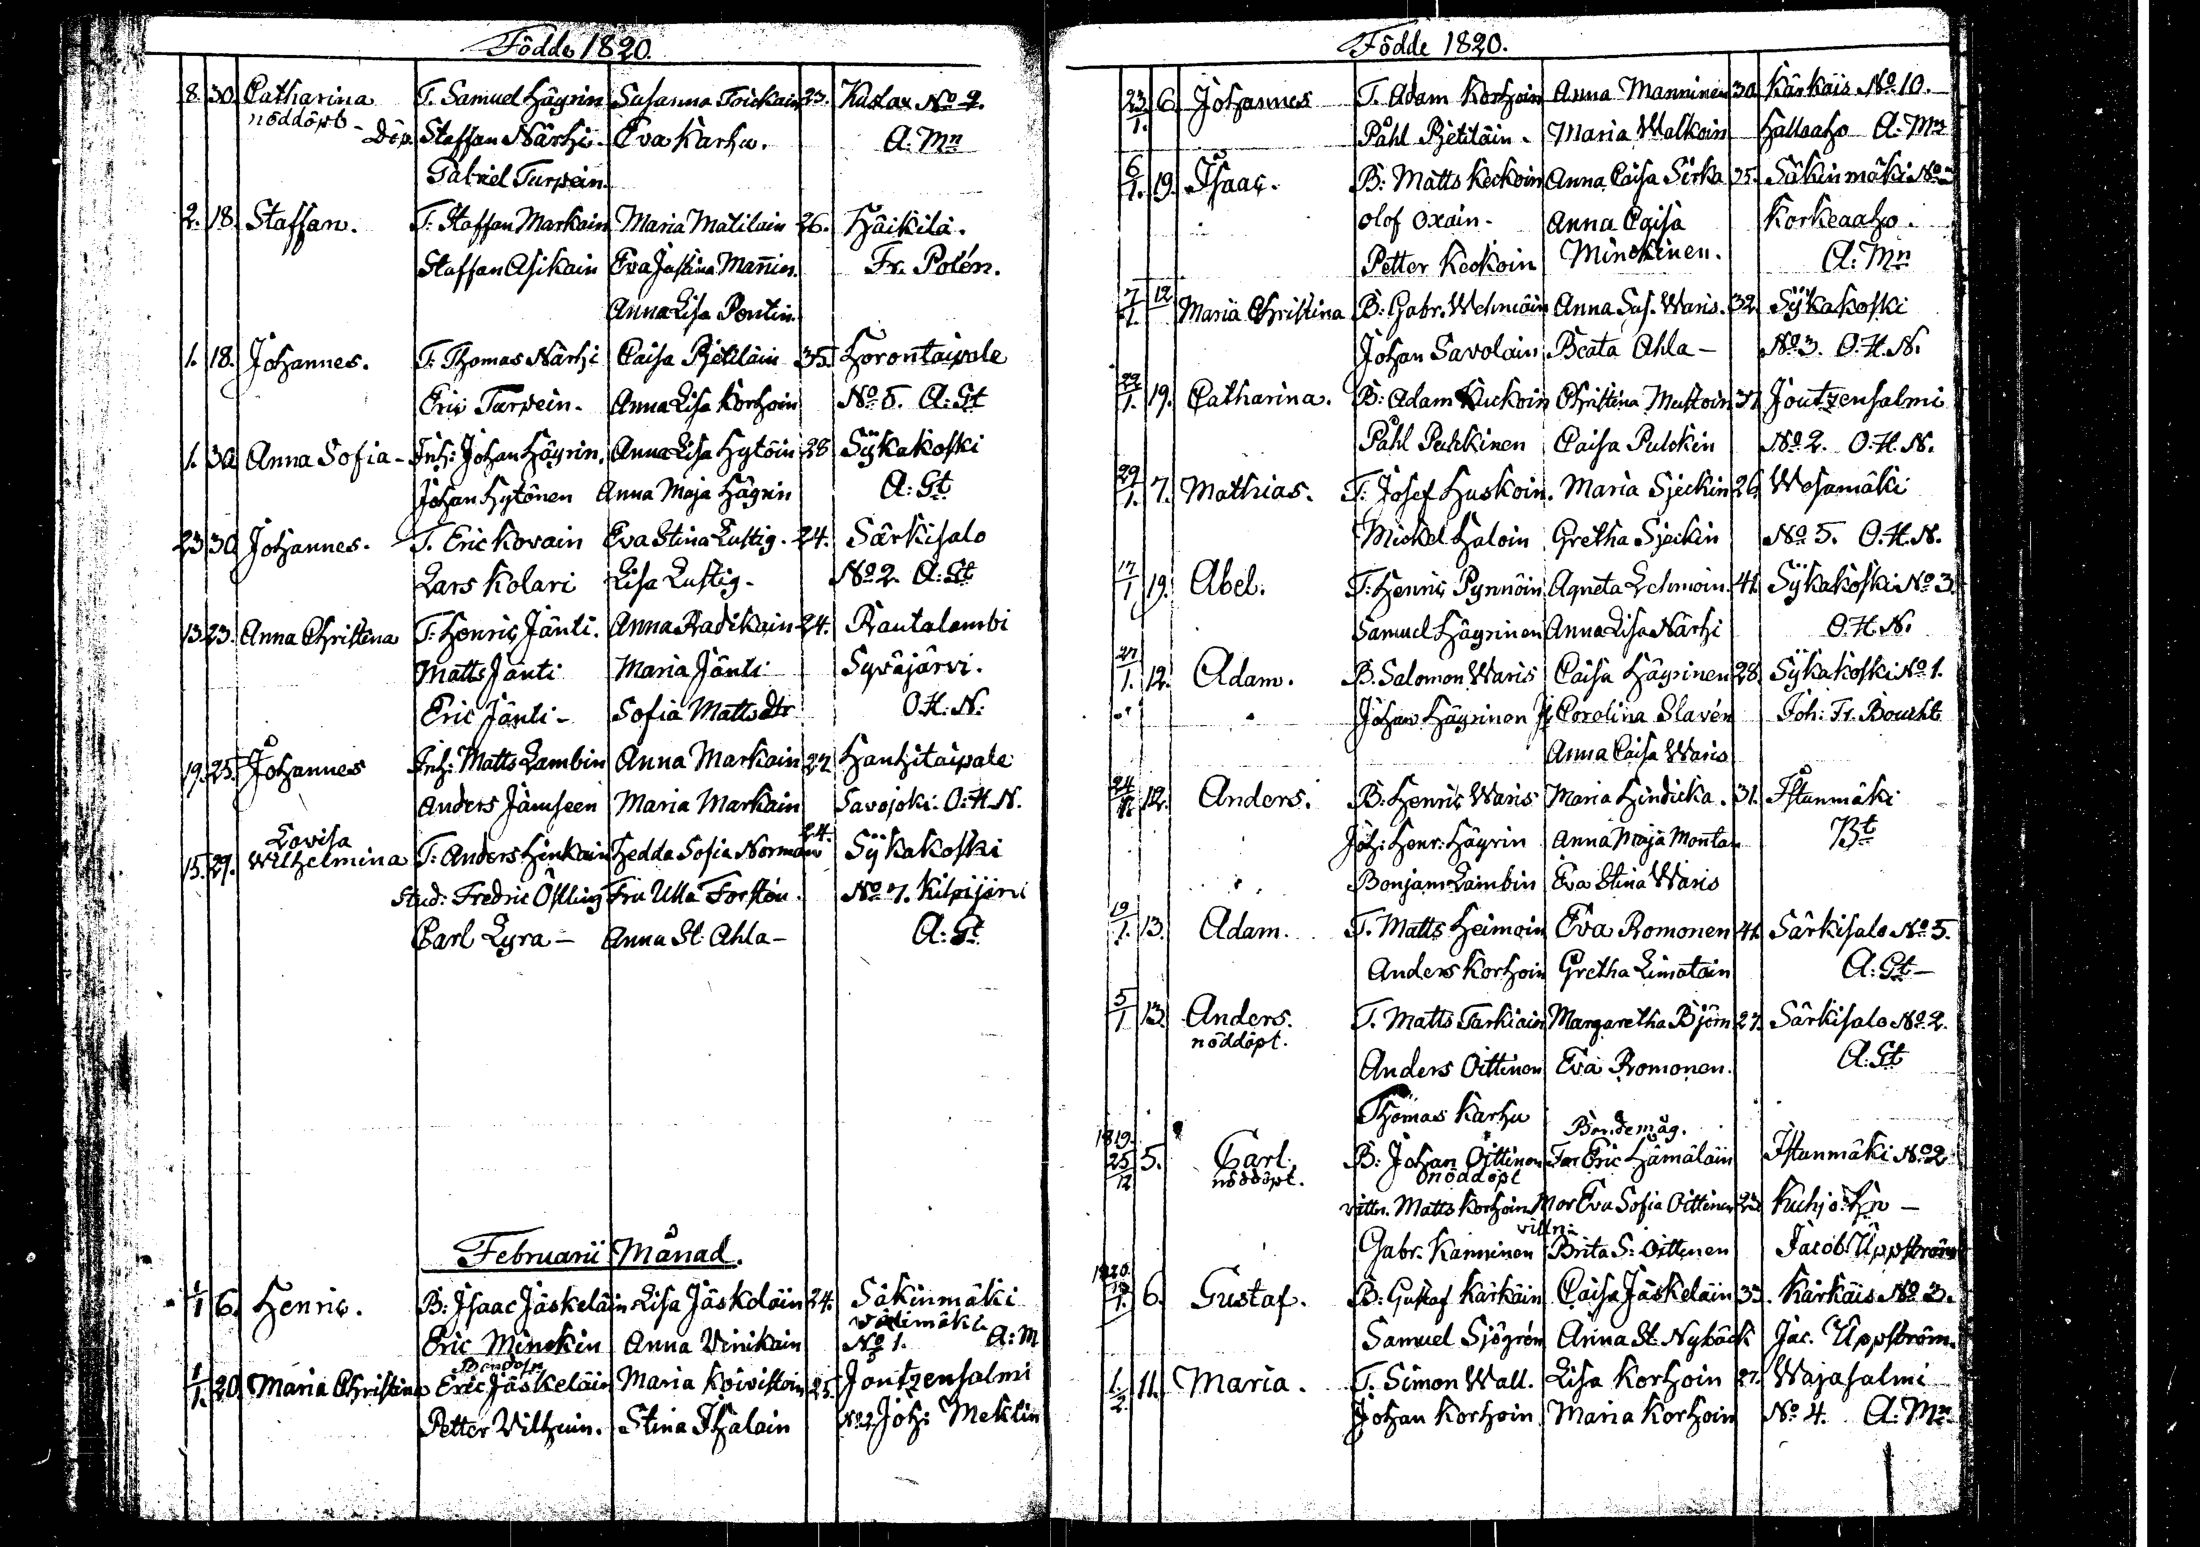 Födde 1820.
8. 30. Catharina T. Samuel Häyrin Susanna Toickain 23. Kustax No 2.
nöddöpt - Döp. Staffan Närhi. Eva Karhu. A: Mn
Gabriel Turpein.
2. 18. Staffan. T: Staffan Markain Maria Matilain 26. Häikilä.
Staffan Asikain Eva Justina Mañin. Fr. Polén.
Anna Lisa Pontin.
1. 18. Johannes. T: Thomas Närhi Caisa Pjetiläin 35. Horontaipale
Eric Turpein. Anna Lisa Korhoin No 5. A: St
1. 30 Anna Sofia - Inh: Johan Häyrin. Anna Lisa Hytöin 28 Sÿkakoski
Johan Hytönen Anna Maja Häyrin A: St
23 30 Johannes. T. Eric Kovain Eva Stina Lustig. 24. Särkisalo
Lars Kolari Lisa Lustig. No 2. A: St
13. 23. Anna Christina T: Henric Jänti. Anna Radikain 24. Rautalambi
Matts Jänti Maria Jänti Syväjärvi.
Eric Jänti - Sofia Matts dtr O. H. N:
19. 25. Johannes Inh: Matts Lambin Anna Markain 22 Hanhitaipale
Anders Jämseen Maria Markain Savojoki. O: H. N.
Lovisa 24.
15. 29. Wilhelmina T: Anders Hinkain Hedda Sofia Norman Sÿkakoski
Stud: Fredric Östling Fru Ulla Forstén. No 7. Kilpijärvi
Carl Lyra - Anna St. Ahla - A: St
Februarii Månad.
1/1 6. Henric. B: Isaac Jäskeläin Lisa Jäskeläin 24. Säkinmäki
välimäki
Eric Minckin Anna Vinikain No 1. A: M
Bondeson
1/1. 20. Maria Christina Eric Jäskeläin Maria Koivistoin 25. Joutzensalmi
Petter Vilhuin. Stina Ihalain No 2 Joh: Meklin
Födde 1820.
23/1. 6. Johannes T. Adam Korhoin Anna Manninen 30. Kärkäis No 10.
Påhl Pjetiläin. Maria Walkoin Hallaaho A: Mn
6/1. 19. Isaac. B: Matts Keckoin Anna Caisa Sirka 35. Säkinmäki No 3
Olof Oxain - Anna Caisa Korkeaaho.
Petter Keckoin Minckinen. A: Mn
7/1. 12 Maria Christina B: Gabr. Wehmäin Anna Sus. Waris. 32. Sÿkakoski
Johan Savolain Beata Ahla - No 3. O. H. N.
22/1. 19. Catharina. B: Adam Kuckoin Christina Mustoin 37 Joutzensalmi
Påhl Pulckinen Caisa Pulckin No 2. O. H. N.
29/1. 7. Mathias. T: Josef Huskoin. Maria Sjeckin 26. Wesamäki
Mickel Haloin Gretha Sjeckin No 5. O. H. N.
17/1 19. Abel. T: Henric Pynnöin Agneta Lehmoin. 41. Sÿkakoski No 3.
Samuel Häyrinen Anna Lisa Närhi O. H. N.
27/1. 12. Adam. B. Salomon Waris Caisa Häyrinen 28. Sÿkakoski No 1.
Johan Häyrinen Carolina Slavén Joh: Fr. Boucht
Anna Caisa Waris
24/1. 12. Anders. B: Henric Waris Maria Hindicka. 31. Istunmäki
Joh: Henr: Häyrin Anna Maja Montan Bt
Benjam Lambin Eva Stina Waris
19/1. 13. Adam. T. Matts Heimoin Eva Romonen 41. Särkisalo No 5.
Anders Korhoin Gretha Limatain A: St -
5/1 13. Anders. T. Matts Tarkiain Margaretha Björn 27. Särkisalo No 2.
nöddöpt.
Anders Oittinen Eva Romonen. A: St
Thomas Karhu
1819. Bondemåg.
25/12 5. Carl. B: Johan Oittinen Far Eric Hämäläin Istunmäki No 2
nöddöpt. nöddöpt
vittn. Matts Korhoin Mor Eva Sofia Oittinen 23 Kuhjo: Hn -
vittn:
Gabr. Kanninen Brita S: Oittinen Jacob Uppström
1820.
19/1. 6. Gustaf. B: Gustaf Kärkäin Caisa Jäskeläin 33. Kärkäis No 3.
Samuel Sjögrén Anna St. Nybäck Jac. Uppström.
1/2. 11. Maria. T. Simon Wall. Lisa Korhoin 27. Wajasalmi
Johan Korhoin Maria Korhoin No 4. A: Mn